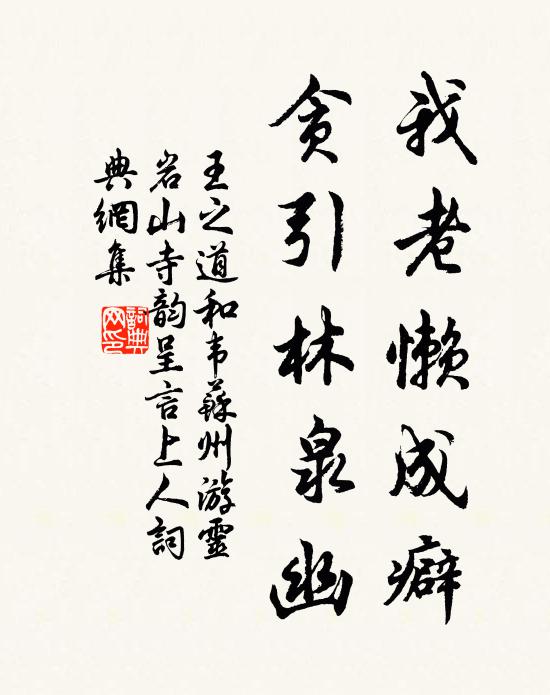 我老懒成癖
贪引林泉幽
王之道和韦蘇州游靈
岩山寺韵呈言上人詞
典網集
詞典
网印